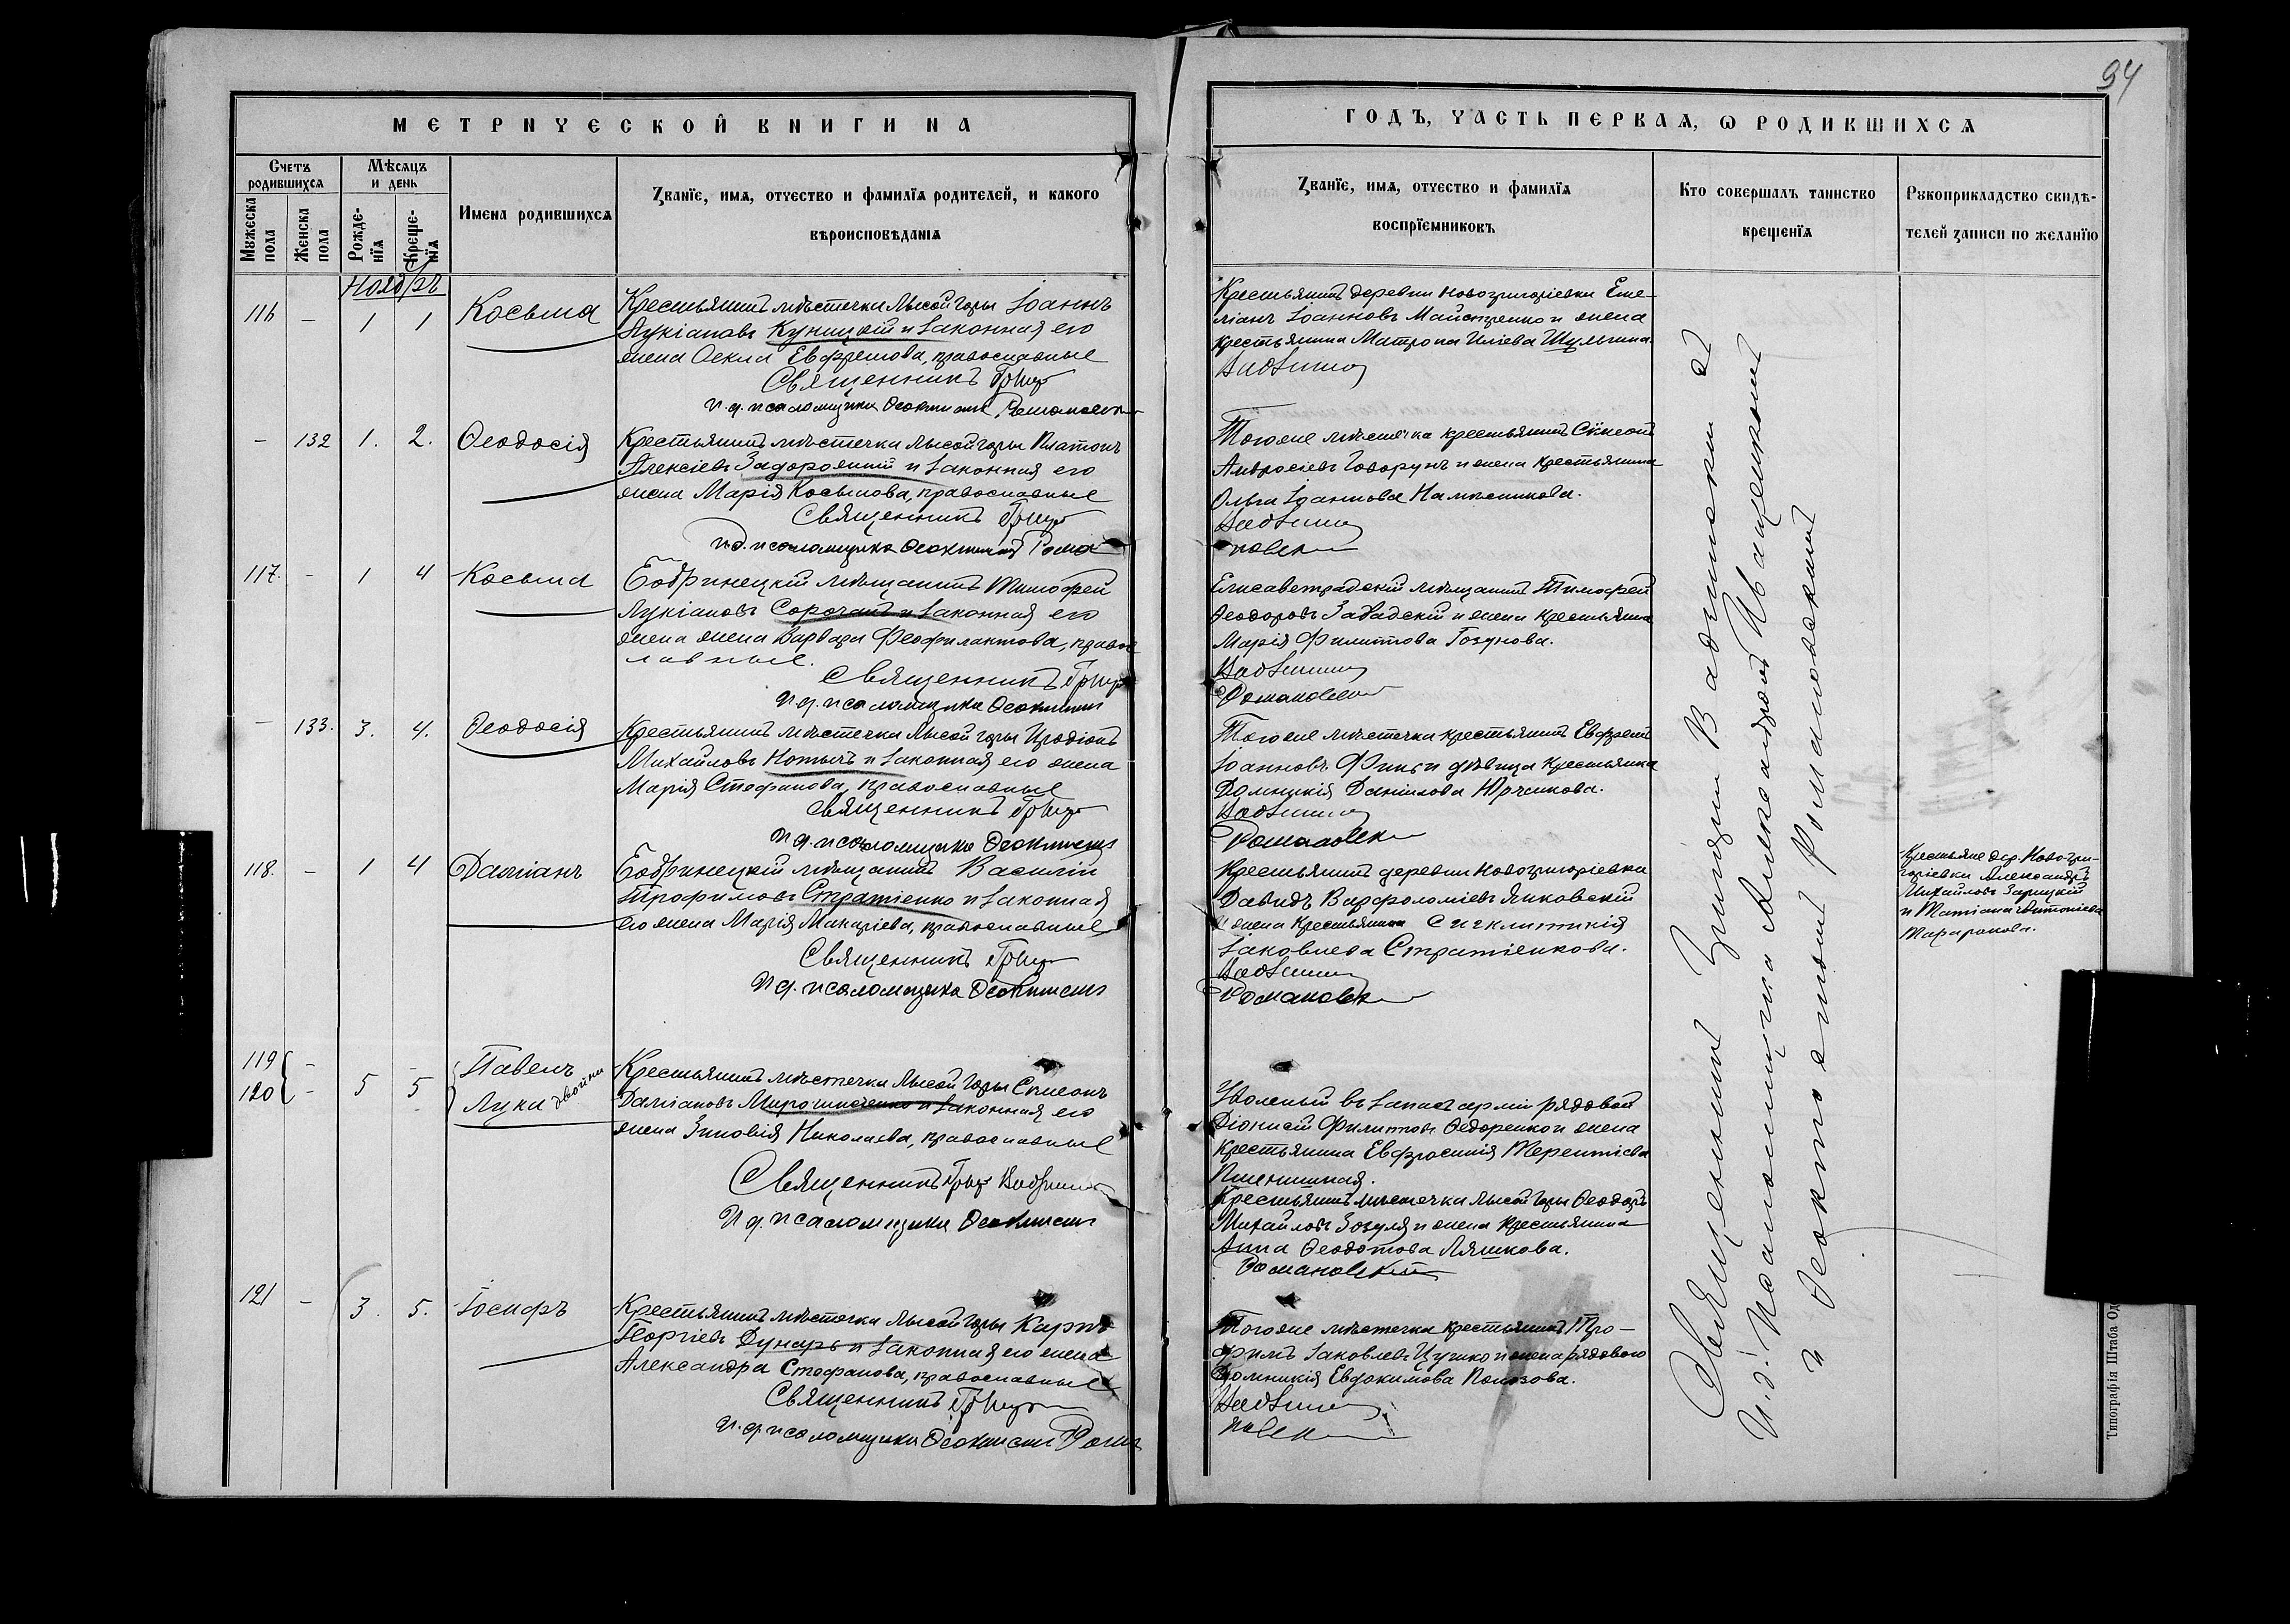 94
МЕТРИЧЕСКОЙ КНИГИ НА
Счетъ родившихся
Мужеска пола
Женска пола
Мѣсяцъ и день
Рожде-нїя
Креще-нїя
Имена родившихся
Званїе, имя, отчество и фамилїя родителей, и какого
вѣроисповѣданїя
ГОДЪ, ЧАСТЬ ПЕРВАЯ, Ѡ РОДИВШИХСЯ
Званїе, имя, отчество и фамилїя
воспрїемниковъ
Кто совершалъ таинство
крещенїя
Рукоприкладство свидѣ-
телей записи по желанїю
Ноябрь
116 - 1 1 Косьма
Крестьянинъ мѣстечка Лысой горы Іоаннъ
Лукіановъ Куницкій и законная его
жена Ѳекла Ефремова, православные
Священникъ Григ
И. д. псаломщика Ѳеоктистъ Романовск
Крестьянинъ деревни Новогригоріевки Еме-
ліанъ Іоанновъ Майстренко и жена
крестьянина Матрона Иліева Шульгина.
- 132 1. 2. Ѳеодосія
Крестьянинъ мѣстечка Лысой горы Платонъ
Алексіевъ Задорожній и законная его
жена Марія Косьмова, православные
Священникъ Григ
И. д. псаломщика Ѳеоктистъ Рома
Тогоже мѣстечка крестьянинъ Сѵмеонъ
Амвросіевъ Говорунъ и жена крестьянина
Ольга Іоаннова
новск
117. - 1 4 Косьма
Бобринецкій мѣщанинъ Тимофей
Лукіановъ Сорочанъ и законная его
жена жена Варвара Феофилактова, право
славные.
Священникъ Григ
И. д. псаломщика Ѳеоктист
Елисаветградскій мѣщанинъ Тимофей
Ѳеодоровъ Завадскій и жена крестьянина
Марія Филиппова
Романовск
- 133. 3. 4. Ѳеодосія
Крестьянинъ мѣстечка Лысой горы Иродіонъ
Михайловъ и законная его жена
Марія Стефанова, православные
Священникъ Григ
И. д. псаломщика Ѳеоктист
Тогоже мѣстечка крестьянинъ Ефремъ
Іоанновъ и дѣвица крестьянка
Домникія Даніилова Юрчикова.
Романовск
118. - 1 4 Даміанъ
Бобринецкій мѣщанинъ Василій
Трофимовъ Стратіенко и законная
его жена Марія Макаріева, православные
Священникъ Григ
И. д. псаломщика Ѳеоктист
Крестьянинъ деревни Новогригоріевки
Давидъ Варфоломіевъ Янковскій
и жена крестьянина Сигклитикія
Іаковлева Стратіенкова.
Романовск
Крестьяне дер. Новогри-
горіевки Александръ
Михайловъ Зарицкій
и Татіана Антоніева
119 - Павелъ
120 - 5 5 Лука двойни
Крестьянинъ мѣстечка Лысой Горы Симеонъ
Даміановъ Мирошниченко и законная его
жена Зиновія Николаева, православные
Священникъ Григ
И. д. псаломщика Ѳеоктист
Уволеный въ запасъ арміи рядовой
Діонисій Филипповъ Ѳедоренко и жена
крестьянина Евфросинія Терентіева
Пшеничная.
Крестьянинъ мѣстечка Лысой Горы Ѳеодоръ
Михайловъ Зозуля и жена крестьянина
Анна Ѳеодотова Ляшкова.
Романовскій
121 - 3. 5. Іосифъ
Крестьянинъ мѣстечка Лысой Горы Карпъ
Георгіевъ Дунаръ и законная его жена
Александра Стефанова, православные
Священникъ Григ
И. д. псаломщика Ѳеоктист Рома
Тогоже мѣстечка крестьянинъ Тро-
фимъ Іаковлевъ и жена рядового
Домникія Евдокимова
новск
Священникъ Григорій
И. д. псаломщика Александръ Иващенковъ
и Ѳеоктистъ Романовскій
Типографія Штаба Од